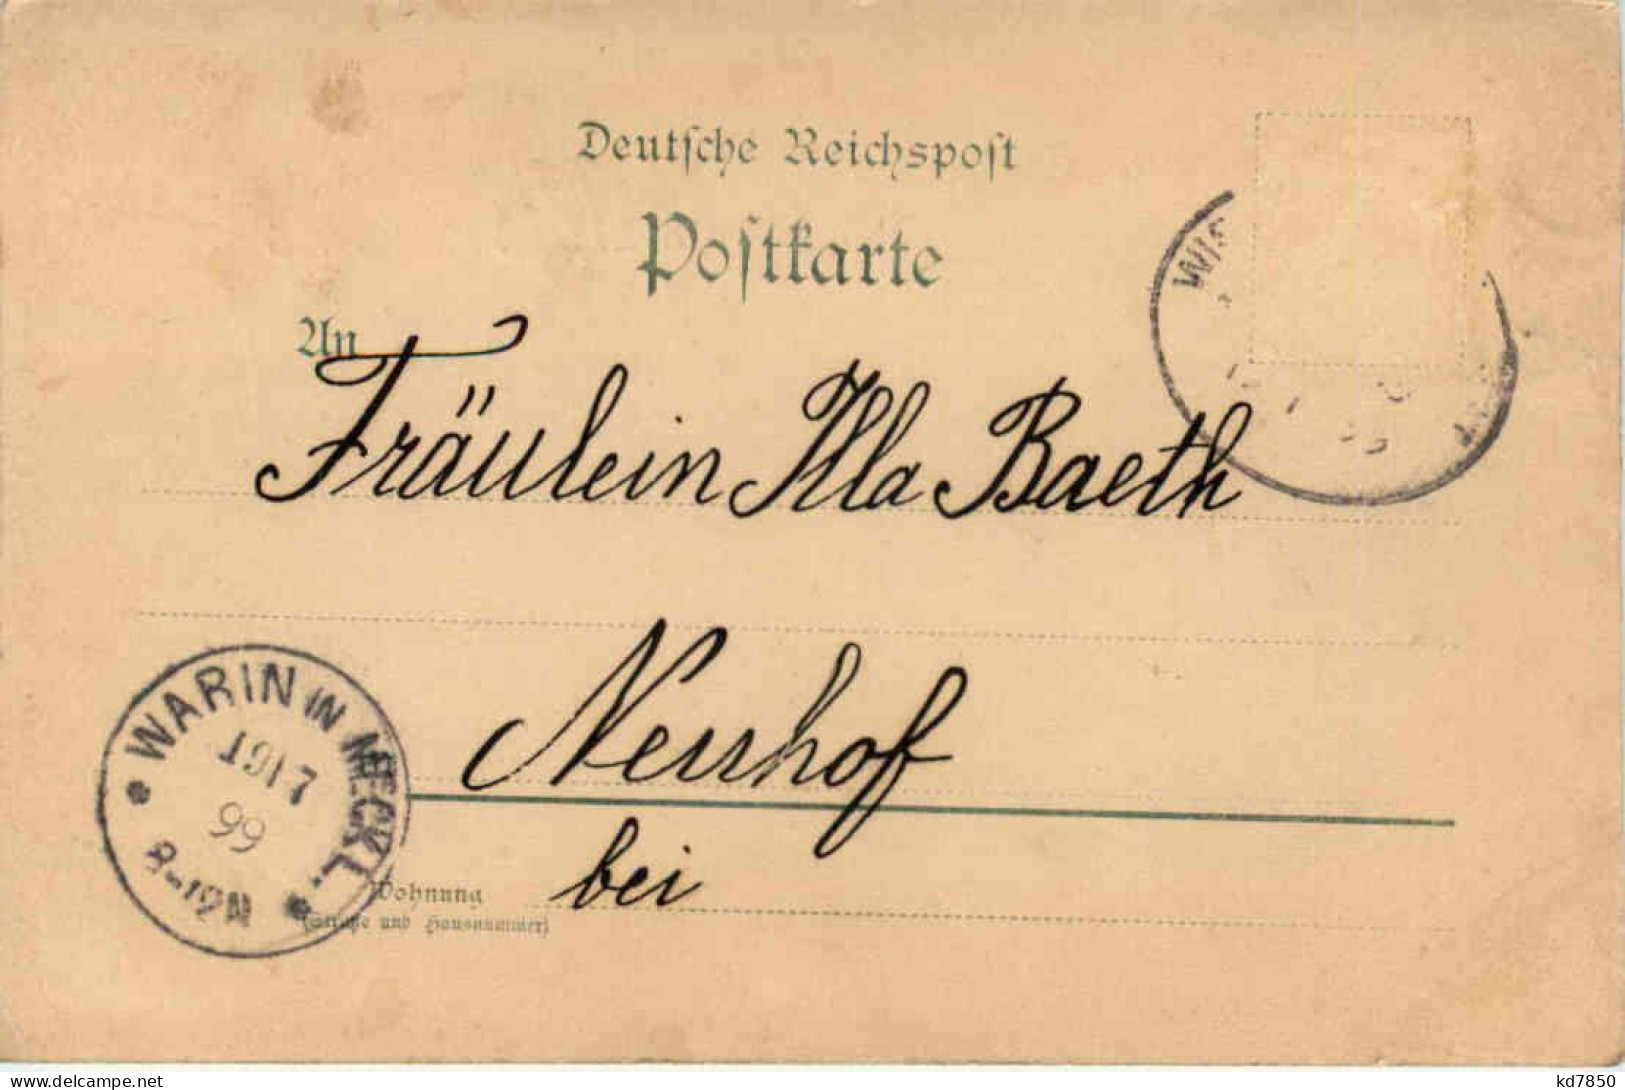 Deutsche Reichspost
Postkarte
An
Fräulein Illa Baeth
Neuhof
bei
Wohnung
(Straße und Hausnummer)
WARIN IN MECKL.
19 7
99
8-12N
WIS
kd7850